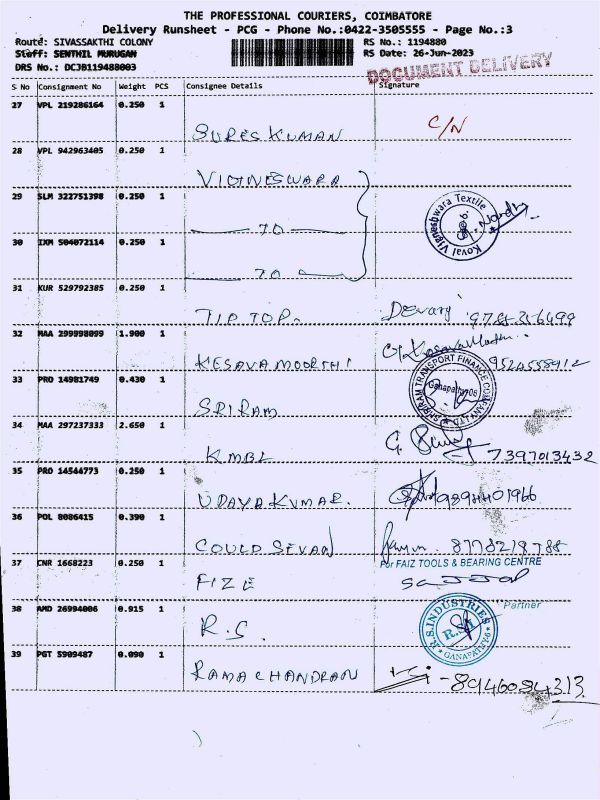 THE PROFESSIONAL COURIERS, COIMBATORE
Delivery Runsheet - PCG - Phone No.:0422-3505555 - Page No.:3
Route: SIVASSAKTHI COLONY RS No.: 1194880
Staff: SENTHIL MURUGAN RS Date: 26-Jun-2023
DRS No.: DCJB119488003
DOCUMENT DELIVERY
S No Consignment No Weight PCS Consignee Details Signature
27 VPL 219286164 0.250 1
SURESKUMAN C/N
28 VPL 942963405 0.250 1
VIGINESWARA
29 SLM 322751398 0.250 1
Koval Vigneshwara Textile
30 IXM 504072114 0.250 1
31 KUR 529792385 0.250 1
TIP TOP. Devaraj 9788356499
32 MAA 299998099 1.900 1
KESAVAMOORTHI 9524558912
33 PRO 14981749 0.430 1
SHRIRAM TRANSPORT FINANCE COMPANY LTD
SRIRAM
34 MAA 297237333 2.650 1
KMBL 7397013432
35 PRO 14544773 0.250 1
UDAYAKUMAR. 9894401966
36 POL 8086415 0.390 1
COULD SEVAN 8778219788
37 CNR 1668223 0.250 1
For FAIZ TOOLS & BEARING CENTRE
FIZE
Partner
38 AMD 26994006 0.915 1
R.S. R.S. INDUSTRIES
GANAPATHY
39 PGT 5909487 0.090 1
RAMACHANDRAN